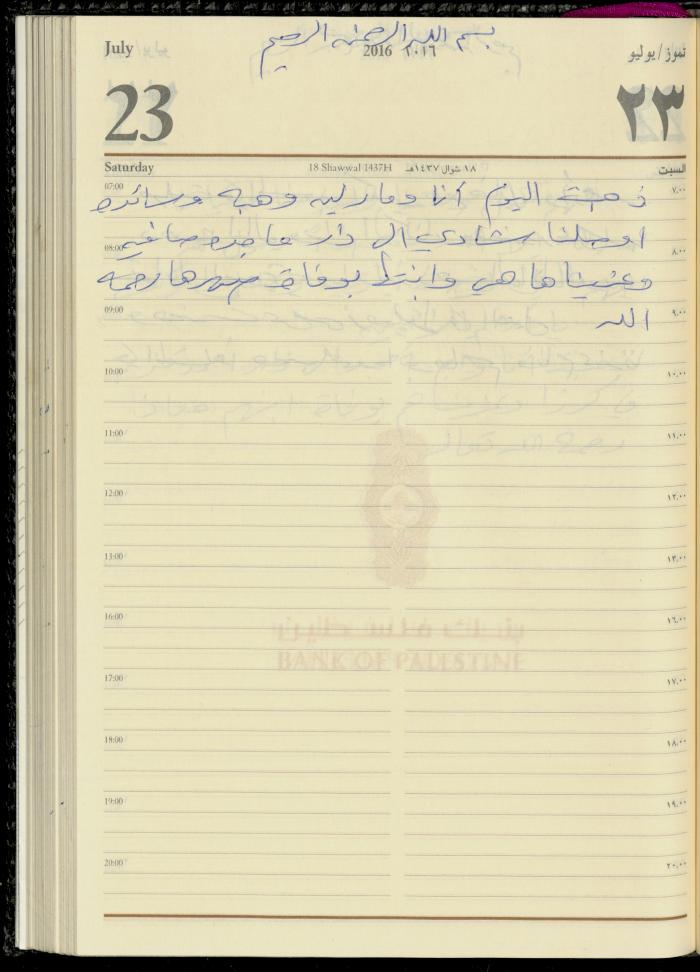 بسم الله الرحمن الرحيم
July
2016 ٢٠١٦
تموز / يوليو
23
٢٣
Saturday
18 Shawwal 1437H
١٨ شوال ١٤٣٧هـ
السبت
07:00 ٧.٠٠
ذهبت اليوم أنا ومارلين وهبه وسائده
اوصلنا شادي الى دار ماجده صافي
08:00 ٨.٠٠
وعزيناها هي وابنتها بوفاة صهرها رحمه
09:00 ٩.٠٠
الله
10:00 ١٠.٠٠
11:00 ١١.٠٠
12:00 ١٢.٠٠
13:00 ١٣.٠٠
16:00 ١٦.٠٠
BANK OF PALESTINE
17:00 ١٧.٠٠
18:00 ١٨.٠٠
19:00 ١٩.٠٠
20:00 ٢٠.٠٠